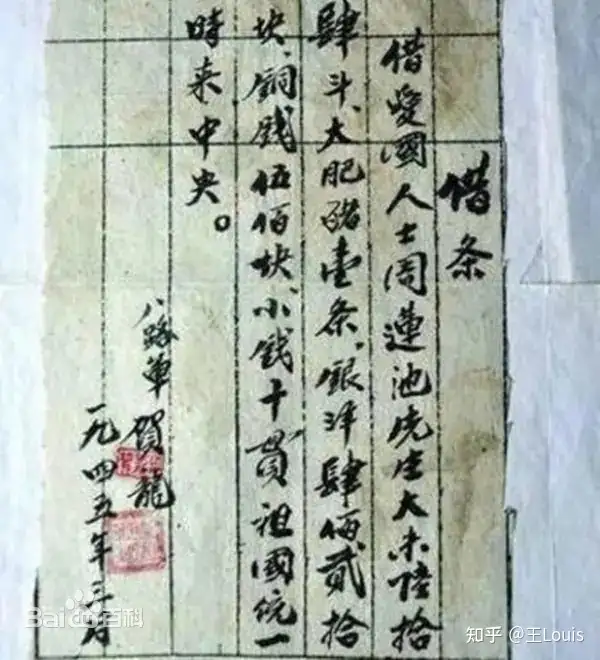 借条
借愛國人士周蓮池先生大米陸拾
肆斗、大肥豬壹条、銀洋肆佰貳拾
块、銅錢伍佰块、小錢十貫祖國统一
時来中央。
八路軍賀龍
一九四五年三月
Bai百科
知乎 @王Louis